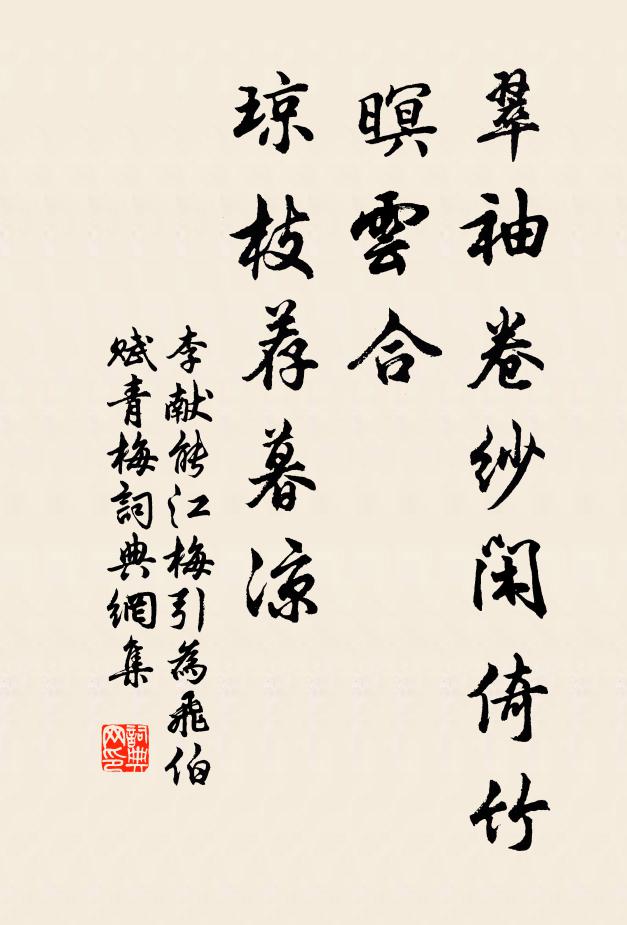 翠袖卷紗閑倚竹
暝雲合
琼枝荐暮涼
李献能江梅引為飛伯
赋青梅詞典網集
詞典网印